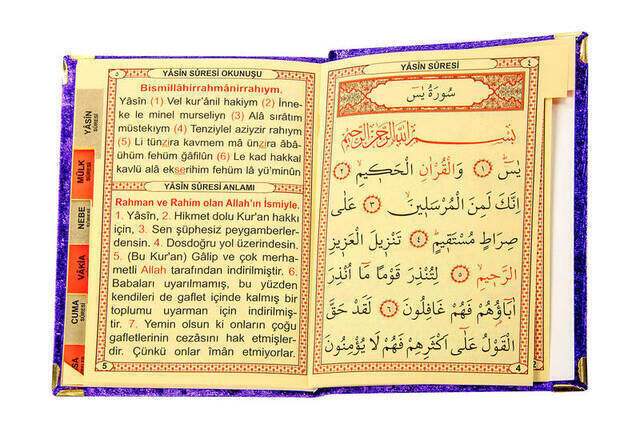 ٥
YÂSİN SÛRESİ OKUNUŞU
Bismillâhirrahmânirrahıym.
Yâsîn (1) Vel kur'ânil hakiym (2) İnne-
ke le minel murseliyn (3) Alâ sırâtım
müstekıym (4) Tenziylel aziyzir rahıym
(5) Li tünzira kavmem mâ ünzira âbâ-
ühüm fehüm gâfilûn (6) Le kad hakkal
kavlü alâ ekserihim fehüm lâ yü'minûn
YÂSİN SÛRESİ ANLAMI
Rahman ve Rahim olan Allah'ın İsmiyle.
1. Yâsîn, 2. Hikmet dolu Kur'an hakkı
için, 3. Sen şüphesiz peygamberler-
densin. 4. Dosdoğru yol üzerindesin.
5. (Bu Kur'an) Gâlip ve çok merha-
metli Allah tarafından indirilmiştir. 6.
Babaları uyarılmamış, bu yüzden
kendileri de gaflet içinde kalmış bir
toplumu uyarman için indirilmiş-
tir. 7. Yemin olsun ki onların çoğu
gafletlerinin cezasını hak etmişler-
dir. Çünkü onlar îmân etmiyorlar.
5
YÂSİN SÛRESİ
MÜLK SÛRESİ
NEBE SÛRESİ
VÂKIA SÛRESİ
CUMA SÛRESİ
SA
YÂSİN SÛRESİ
٤
سُورَةُ يٰسٓ
بِسْمِ اللّٰهِ الرَّحْمٰنِ الرَّحِيمِ
يٰسٓ ﴿١﴾ وَالْقُرْاٰنِ الْحَك۪يمِ ﴿٢﴾
اِنَّكَ لَمِنَ الْمُرْسَل۪ينَ ﴿٣﴾ عَلٰى
صِرَاطٍ مُسْتَق۪يمٍ ﴿٤﴾ تَنْز۪يلَ الْعَز۪يزِ
الرَّح۪يمِ ﴿٥﴾ لِتُنْذِرَ قَوْمًا مَٓا اُنْذِرَ
اٰبَٓاؤُ۬هُمْ فَهُمْ غَافِلُونَ ﴿٦﴾ لَقَدْ حَقَّ
الْقَوْلُ عَلٰٓى اَكْثَرِهِمْ فَهُمْ لَا يُؤْمِنُونَ
4
2